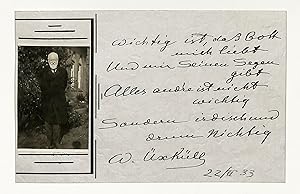 Wichtig ist, daß Gott
mich liebt
Und mir Seinen Segen
gibt
Alles andre ist nicht
wichtig
Sondern irdisch und
drum Nichtig
W. Üxküll
22/III 33